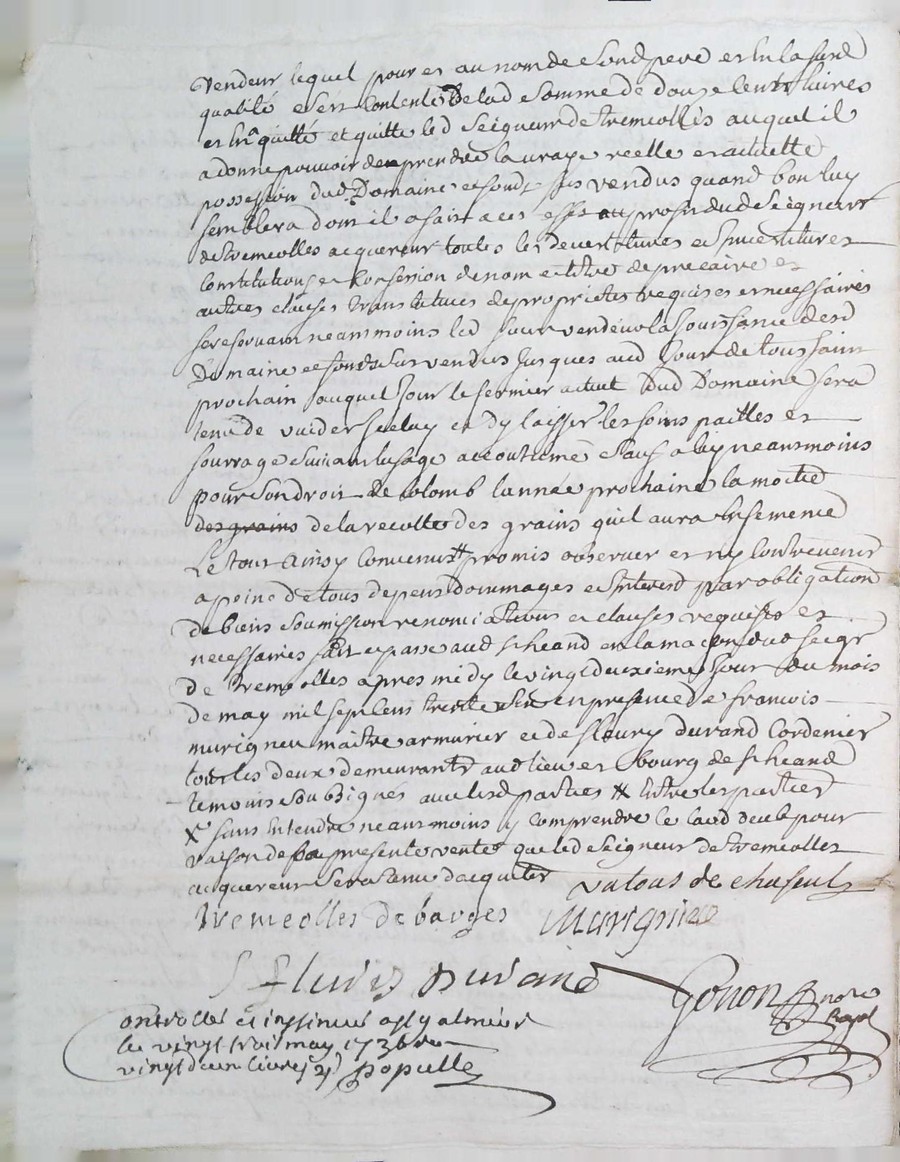 Vendeur lequel pour et au nom de sond pere et en lasusd
qualité e sest contenté de lad somme de douze cents livres
et en a quitté et quitte led seigneur de tremeolles auquel il
a donne pouvoir den prendre la vraye reelle et actuelle
possession dud Domaine et fonds vendus quand bon luy
semblera dont il a fait a ces effets au profit dud seigneur
de tremeolles acquereur toutes les devetitures et investitures
constitutions et confession de nom et titre de precaire et
autres clauses translatives de proprietes requises et necessaires
se reservant neanmoins led sieur vendeur la jouissance desd
Domaine et fonds vendus jusques aud jour de toussaint
prochain auquel jour le fermier actuel dud Domaine sera
tenu de vuider iceluy et dy laisser les foins pailles et
fourrage suivant lusage accoutumé sauf a luy neanmoins
pour son droit de colomb lannée prochaine la moitié
des grains de la recolte des grains quil aura ensemencé
Le tout ainsy convenu promis observer et ny contrevenir
a peine de tous depens dommages et interest par obligation
de biens soumission renonciations et clauses requises et
necessaires fait et passe aud st heand en la maison dud seigr
de tremeolles apres midy le vingt deuxieme jour du mois
de may mil sept cent trente six en presence de francois
murigneu maître armurier et de fleury durand cordonier
tous les deux demeurants aud lieu et bourg de st heand
temoins soubsignés avec lesd parties # Entre les parties
x sans entendre neanmoins y comprendre le laod deub pour
raison de la presente vente que led seigneur de tremeolles
acquereur sera tenu dacquiter
Valous de chaseul
tremeolles de barges
Murignieu
fleuris Durand
Gonon nore
Royal
Controllé et insinué a st galmier
le vingt trois may 1736
vingt deux livres populle